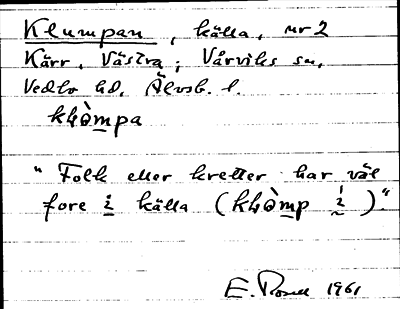 Klumpan, källa, nr 2
Kärr, Västra, Vårviks sn,
Vedbo hd, Älvsb. l.
klòmpa
"Folk eller kretter har väl
fore i källa (klòmp i)".
E. Rosell 1961